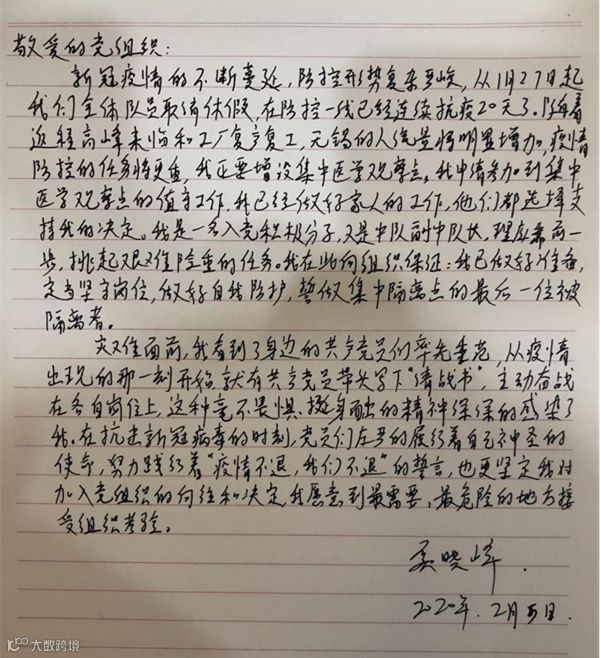 敬爱的党组织：
新冠疫情的不断蔓延，防控形势复杂严峻，从1月27日起
我们全体队员取消休假，在防控一线已经连续抗疫20天了。随着
返程高峰来临和工厂复产复工，无锡的人流量将明显增加，疫情
防控的任务将更重，我区要增设集中医学观察点。我申请参加到集中
医学观察点的值守工作，我已经做好家人的工作，他们都选择支
持我的决定。我是一名入党积极分子，又是中队副中队长，理应靠前一
步，挑起艰难险重的任务。我在此向组织保证：我已做好准备，
定当坚守岗位，做好自我防护，誓做集中隔离点的最后一位被
隔离者。
灾难面前，我看到了身边的共产党员们率先垂范，从疫情
出现的那一刻开始，就有共产党员带头写下“请战书”，主动奋战
在各自岗位上，这种毫不畏惧、挺身而出的精神深深的感染了
我。在抗击新冠病毒的时刻，党员们在履行着自己神圣的
使命，努力践行着“疫情不退，我们不退”的誓言，也更坚定我对
加入党组织的向往和决定，我愿意到最需要、最危险的地方接
受组织考验。
晓峰
2020年.2月5日.
大数跨境